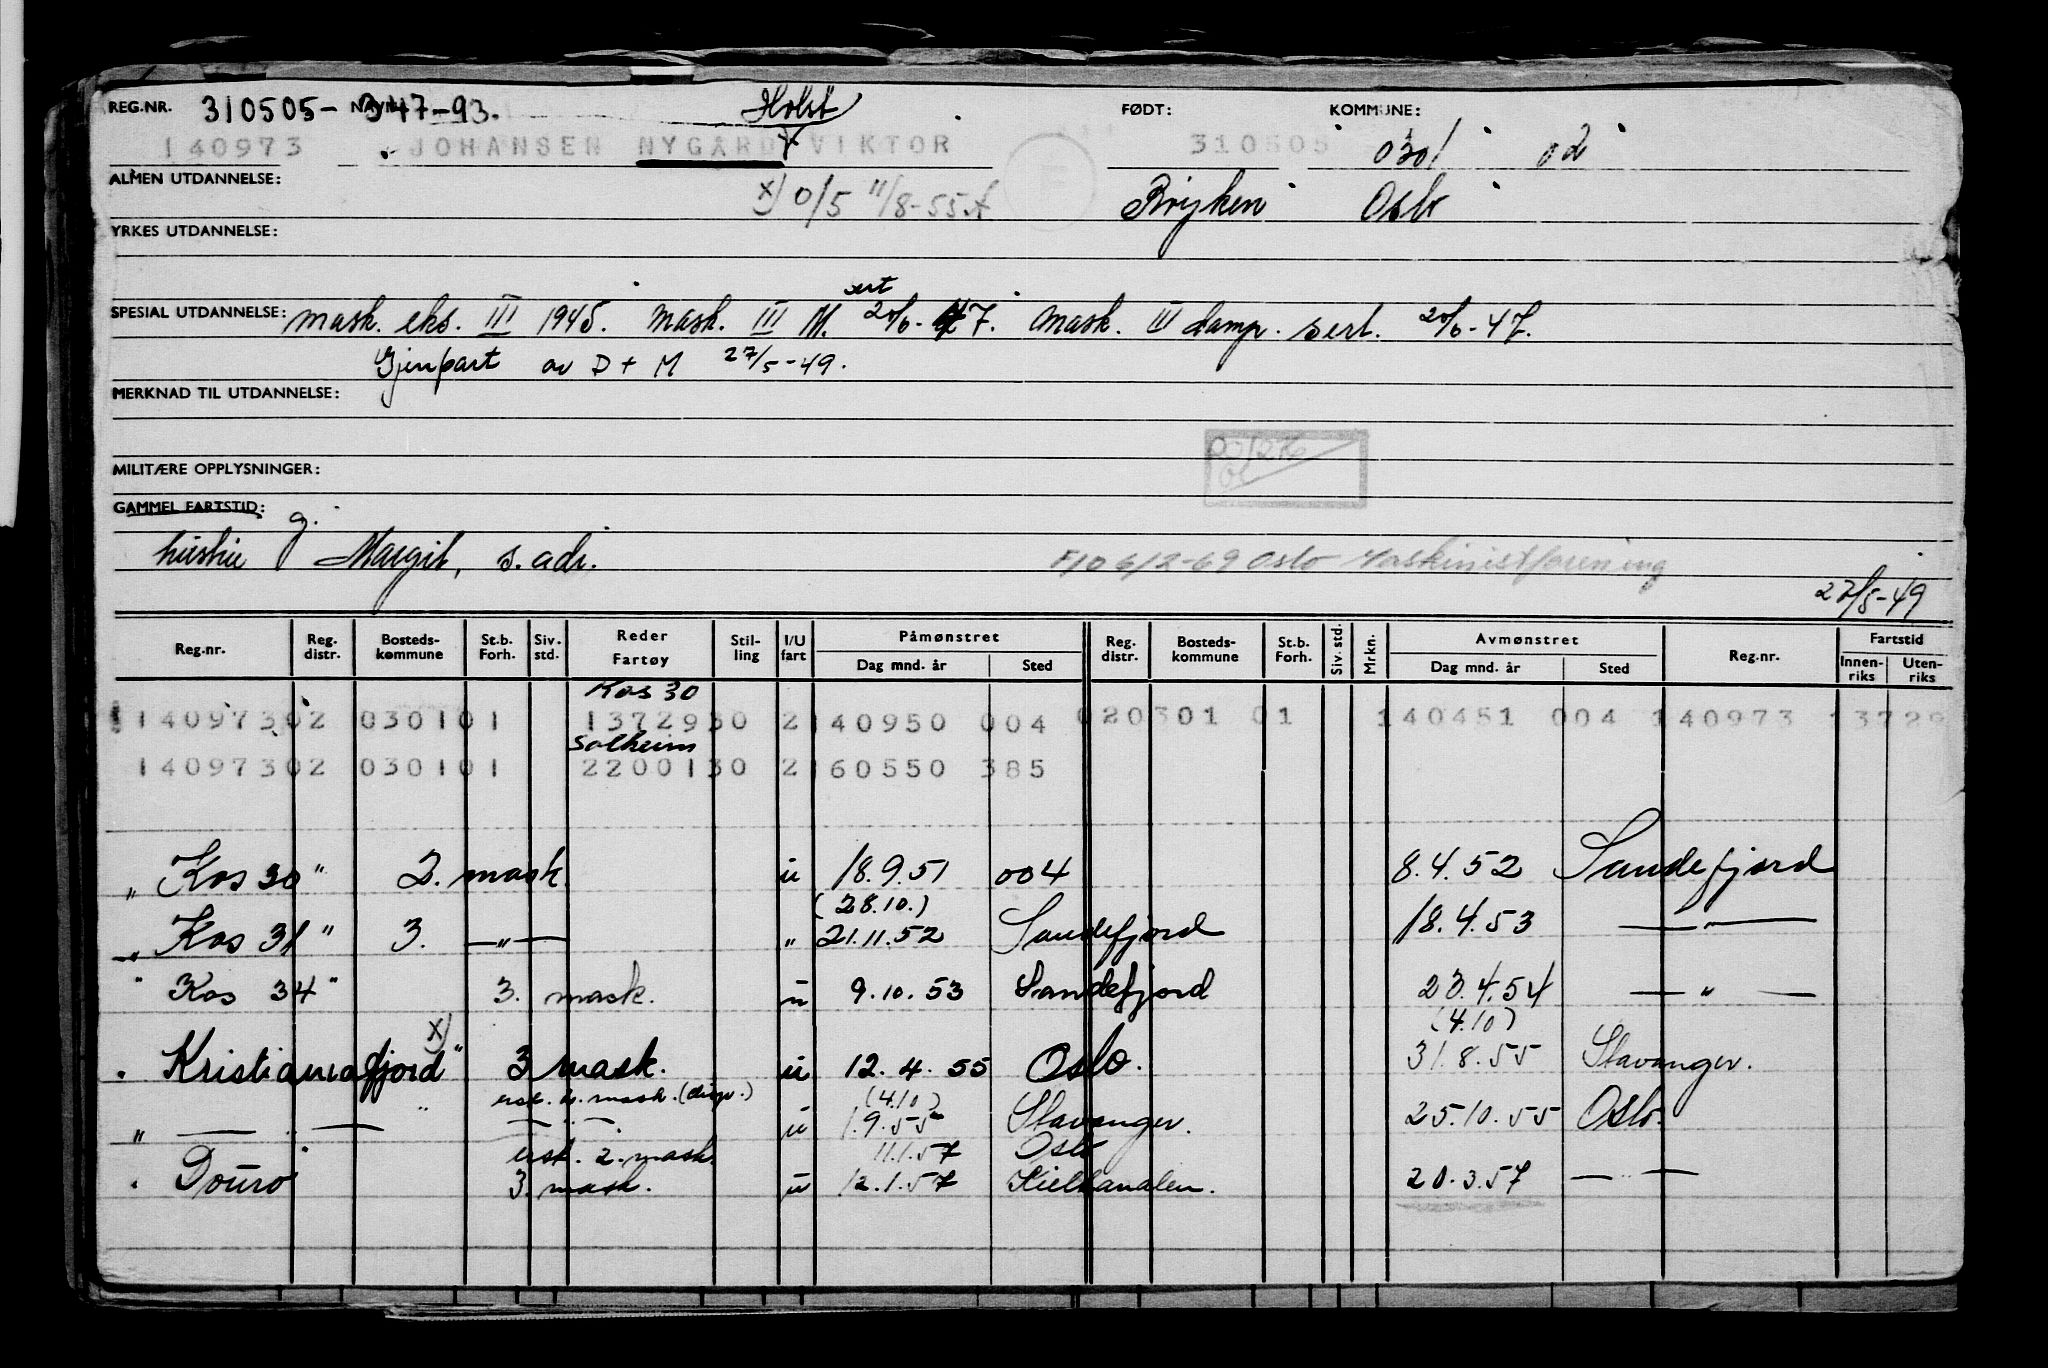 REG.NR. 310505- 347-93. NAVN: Holst FØDT: KOMMUNE:
140973 JOHANSEN NYGARD VIKTOR 310505 0301 02
ALMEN UTDANNELSE: x) 0/5 11/8-55 Oslo
YRKES UTDANNELSE:
sert
SPESIAL UTDANNELSE: mask. eks. III 1945. mask. III M. 20/6-47. mask. III damp. sert. 20/6-47.
Gjenpart av D + M 27/5-49.
MERKNAD TIL UTDANNELSE:
MILITÆRE OPPLYSNINGER:
GAMMEL FARTSTID:
g.
hustru Margit, s. adr. 6/2-69 Oslo Maskinistforening
27/5-49
Reg.nr. Reg. distr. Bosteds-kommune St.b. Forh. Siv. std. Reder Fartøy Stil-ling I/U fart Påmønstret Reg. distr. Bosteds-kommune St.b. Forh. Siv. std. Mrkn. Avmønstret Reg.nr. Fartstid
Dag mnd. år Sted Dag mnd. år Sted Innen-riks Uten-riks
Kos 30
140973 02 0301 01 13729 30 2 140950 004 02 0301 01 140451 004 140973 13729
Solheim
140973 02 0301 01 22001 30 2 160550 385
" Kos 30 " 2. mask. u 18.9.51 004 8.4.52 Sandefjord
(28.10.)
" Kos 31 " 3. —"— " 21.11.52 Sandefjord 18.4.53 —"—
" Kos 34 " 3. mask. u 9.10.53 Sandefjord 23.4.54 —"—
x) (4.10)
" Kristianiafjord " 3 mask. u 12.4.55 Oslo. 31.8.55 Stavanger.
(4.10)
" — " — —"— u 1.9.55 Stavanger. 25.10.55 Oslo.
2. mask. 11.1.57 Oslo
" Douro " 3. mask. u 12.1.57 Kielkanalen. 20.3.57 — —